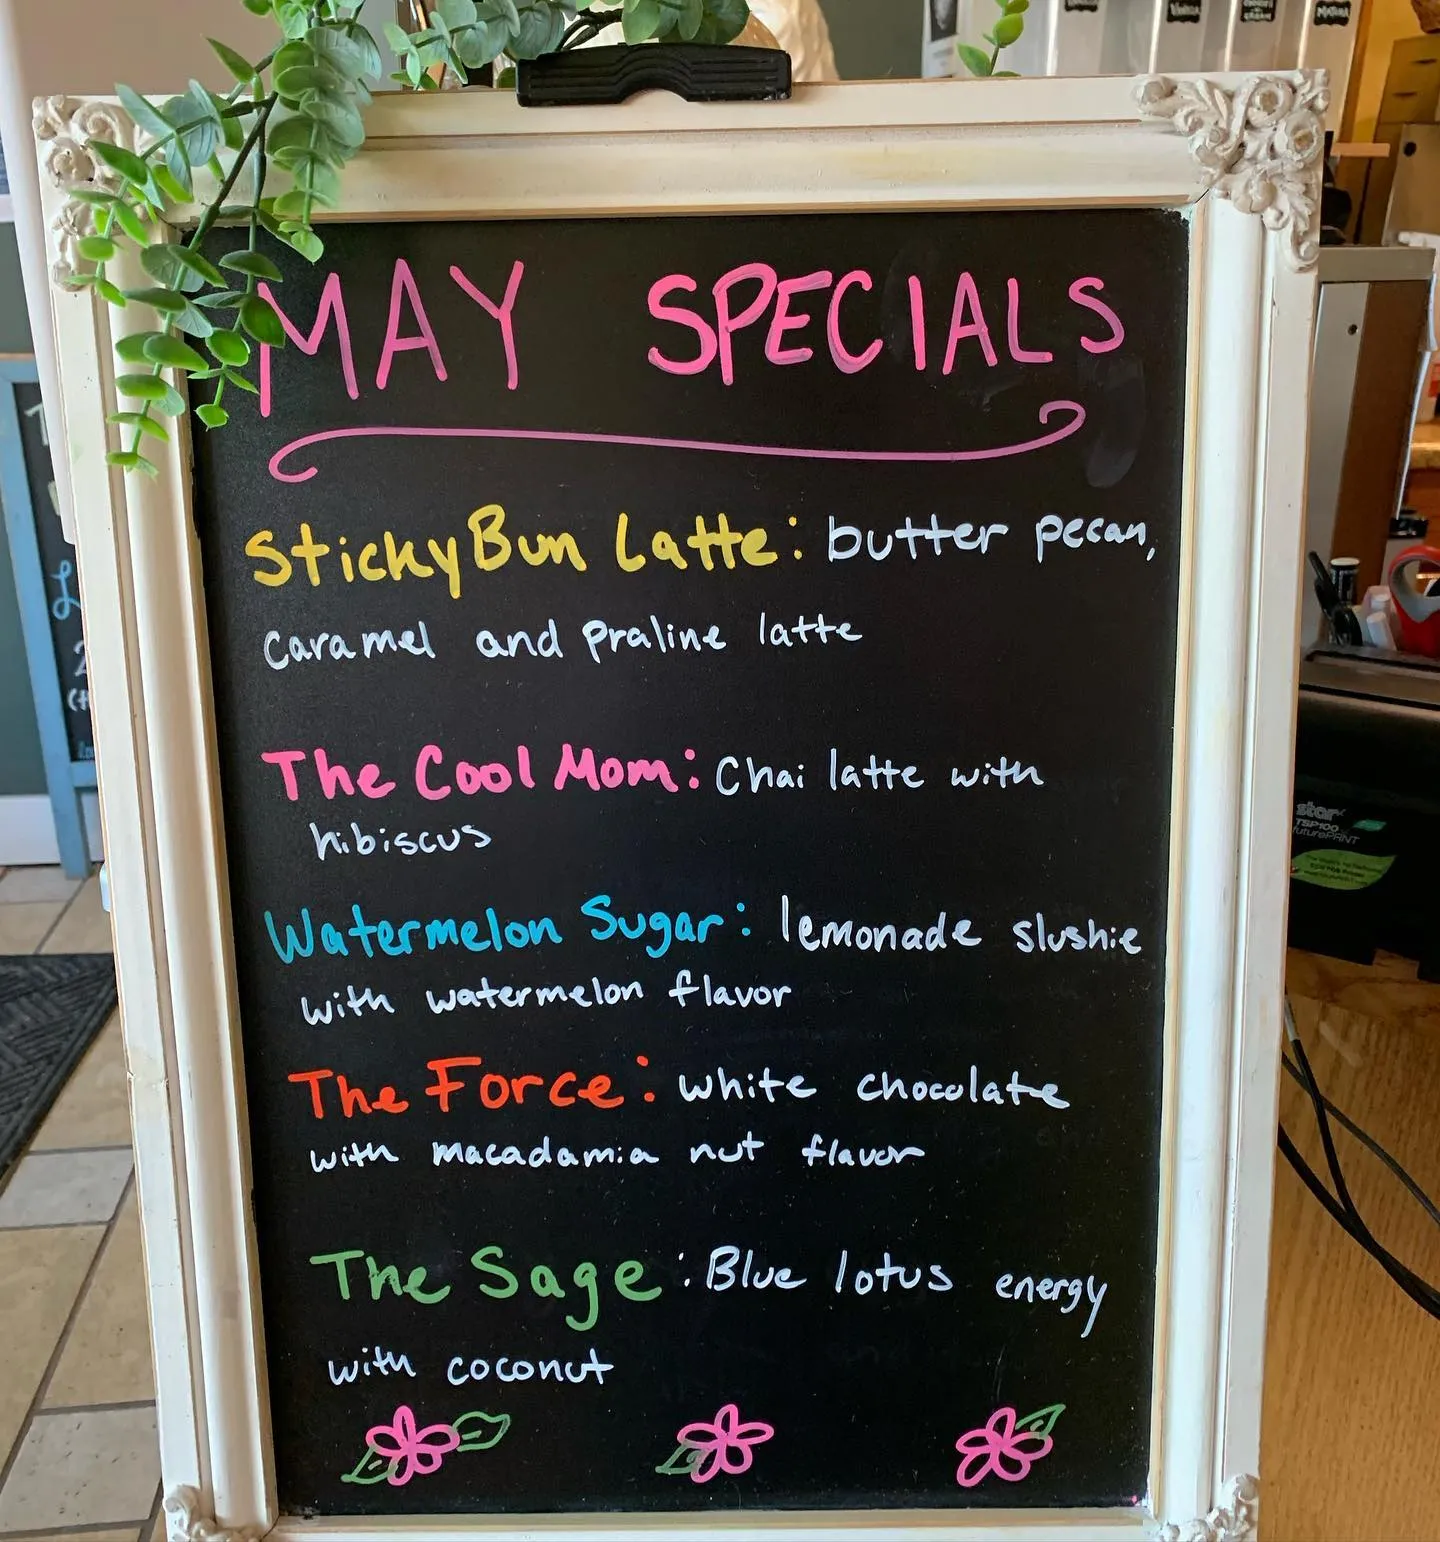 MAY SPECIALS
Sticky Bun Latte: butter pecan,
caramel and praline latte
The Cool Mom: Chai latte with
hibiscus
Watermelon Sugar: lemonade slushie
with watermelon flavor
The Force: white chocolate
with macadamia nut flavor
The Sage: Blue lotus energy
with coconut
star
TSP100
futurePRNT